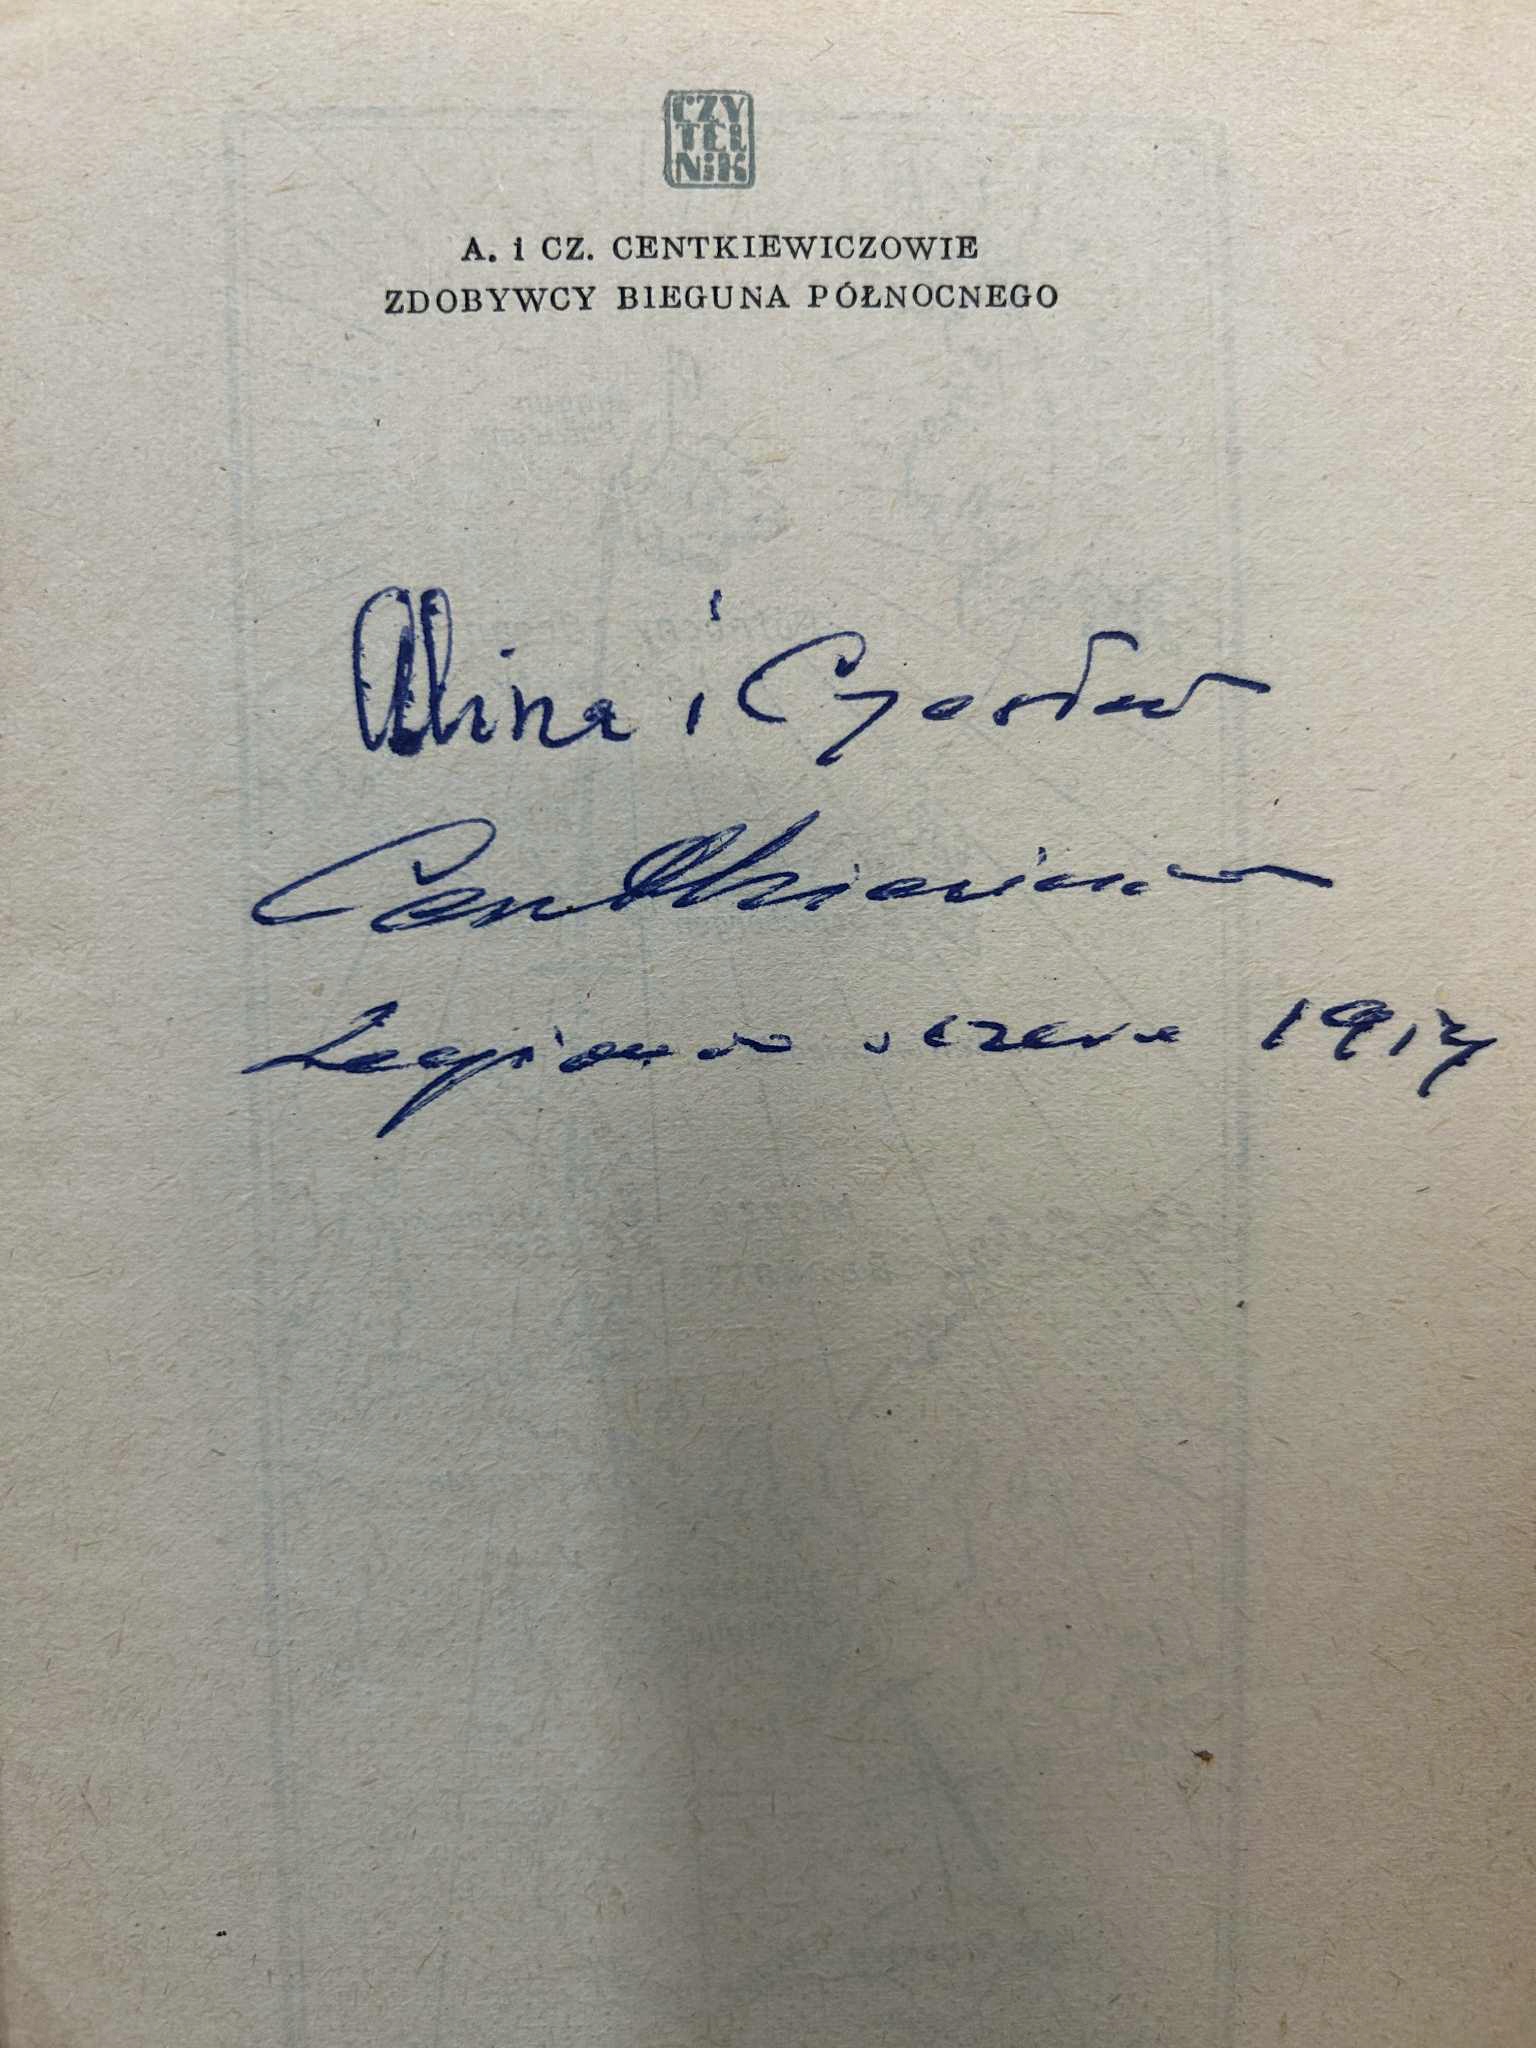 CZY
TEL
NiK
A. i CZ. CENTKIEWICZOWIE
ZDOBYWCY BIEGUNA PÓŁNOCNEGO
Alina i Czesław
Centkiewicz
Legionowo